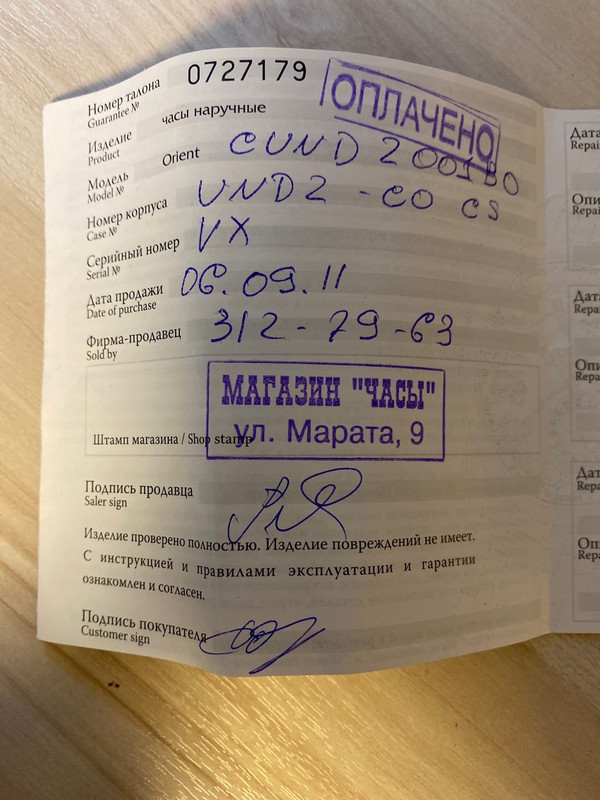 Номер талона 0727179
Guarantee №
ОПЛАЧЕНО
Изделие часы наручные
Product
Модель Orient CUND2001B0
Model №
Номер корпуса UND2-C0 CS
Case №
Серийный номер VX
Serial №
Дата продажи 06.09.11
Date of purchase
Фирма-продавец 312-79-63
Sold by
МАГАЗИН "ЧАСЫ"
ул. Марата, 9
Штамп магазина / Shop stamp
Подпись продавца
Saler sign
Изделие проверено полностью. Изделие повреждений не имеет.
С инструкцией и правилами эксплуатации и гарантии
ознакомлен и согласен.
Подпись покупателя
Customer sign
Дата
Repai
Опи
Repai
Дата
Repai
Опи
Repai
Дат
Repa
Опи
Repa